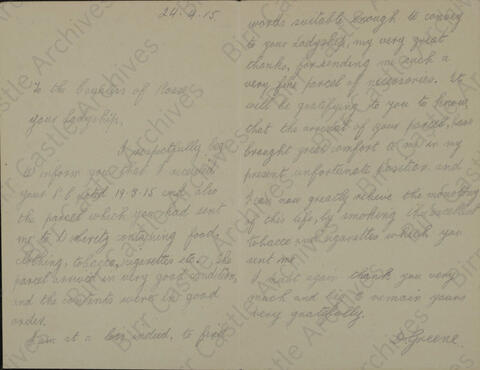 24.9.15
To the Countess of Rosse
Your Ladyship,
I respectfully beg
to inform you that I received
your P.C dated 19-8-15 and also
the parcel which you had sent
me to containing food,
clothing, tobacco, cigarettes etc. The
parcel arrived in very good condition
and the contents were in good
order.
I am at a loss indeed, to find
words suitable enough to convey
to your Ladyship, my very great
thanks, for sending me such a
very fine parcel of necessaries. It
will be gratifying to you to know
that the arrival of your parcel, has
brought great comfort to me in my
present unfortunate position and
I can now greatly relieve the monotony
of this life, by smoking the excellent
tobacco and cigarettes which you
sent me.
I must again thank you very
much and beg to remain yours
very gratefully.
D. Greene.
Birr Castle Archives